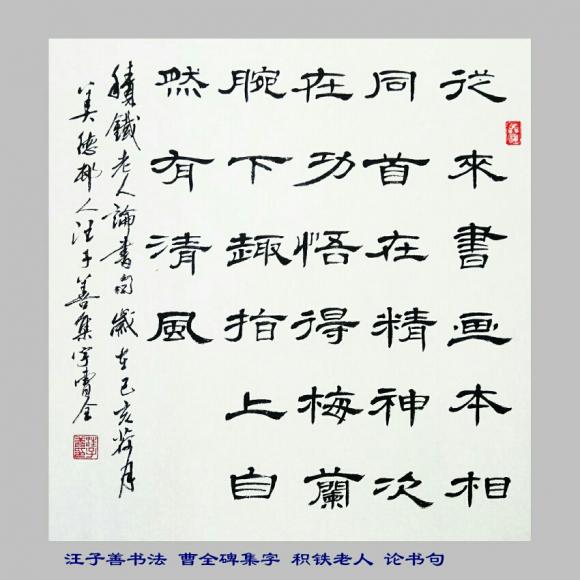 從來書画本相
同首在精神次
在功悟得梅蘭
腕下趣指上自
然有清風
積鐵老人論書句歲在己亥荷月
人汪子善集字曹全
汪子善书法 曹全碑集字 积铁老人 论书句